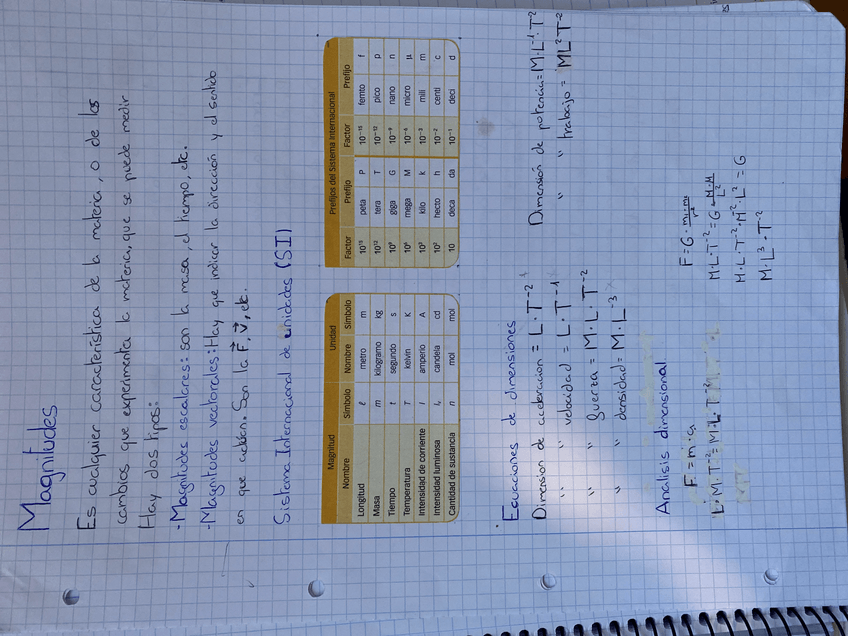 Magnitudes
Es cualquier característica de la materia, o de los
cambios que experimenta la materia, que se puede medir
Hay dos tipos:
-Magnitudes escalares: son la masa, el tiempo, etc.
-Magnitudes vectoriales: Hay que indicar la dirección y el sentido
en que actúan. Son la F⃗, v⃗, etc.
Sistema Internacional de unidades (SI)
Magnitud Unidad
Nombre Símbolo Nombre Símbolo
Longitud ℓ metro m
Masa m kilogramo kg
Tiempo t segundo s
Temperatura T kelvin K
Intensidad de corriente I amperio A
Intensidad luminosa Iᵥ candela cd
Cantidad de sustancia n mol mol
Prefijos del Sistema Internacional
Factor Prefijo Factor Prefijo
10¹⁵ peta P 10⁻¹⁵ femto f
10¹² tera T 10⁻¹² pico p
10⁹ giga G 10⁻⁹ nano n
10⁶ mega M 10⁻⁶ micro μ
10³ kilo k 10⁻³ mili m
10² hecto h 10⁻² centi c
10 deca da 10⁻¹ deci d
Ecuaciones de dimensiones
Dimension de aceleracion = L·T⁻²
" " velocidad = L·T⁻¹
" " fuerza = M·L·T⁻²
" " densidad = M·L⁻³
Dimensión de potencia = M·L⁻¹·T²
" " trabajo = ML²T⁻²
Analisis dimensional
F = m·a
L·M·T⁻² = M·L·T⁻²
F = G · m₁·m₂/r²
M·L·T⁻² = G · M·M/L²
M·L·T⁻²·M⁻²·L² = G
M·L³·T⁻²